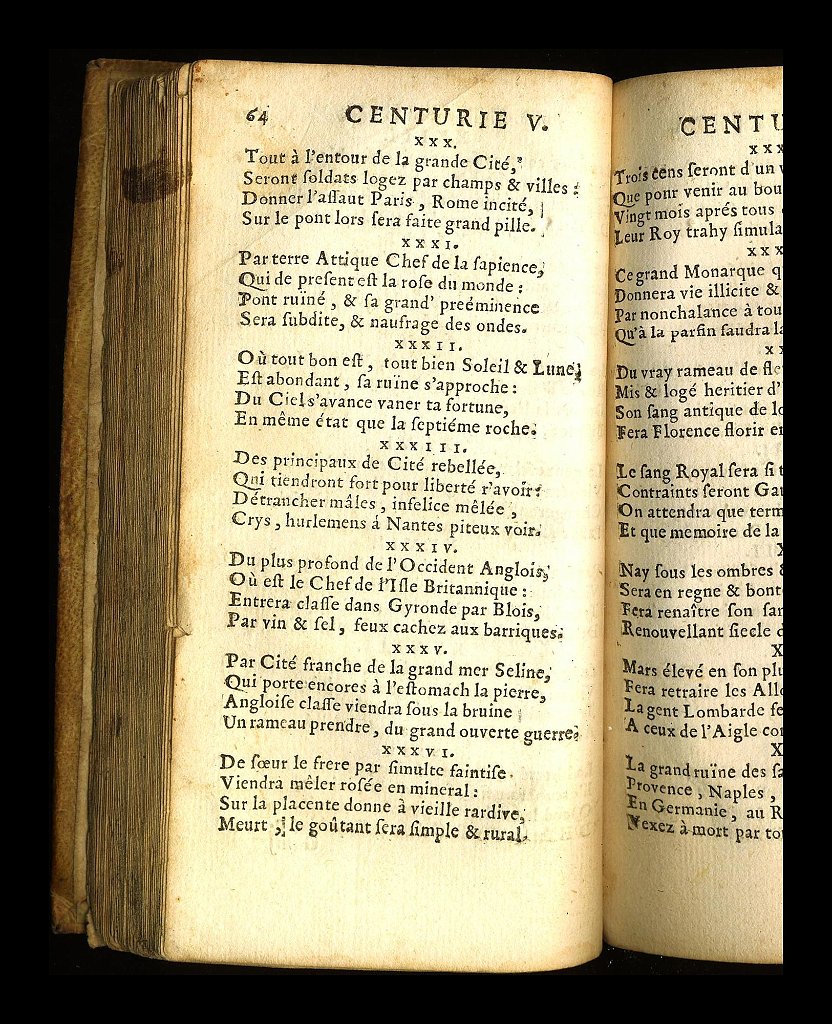 64 CENTURIE V.
XXX.
Tout à l'entour de la grande Cité,
Seront ſoldats logez par champs & villes :
Donner l'aſſaut Paris, Rome incité,
Sur le pont lors ſera faite grand pille.
XXXI.
Par terre Attique Chef de la ſapience,
Qui de preſent eſt la roſe du monde :
Pont ruïné, & ſa grand' preéminence
Sera ſubdite, & naufrage des ondes.
XXXII.
Où tout bon eſt, tout bien Soleil & Lune,
Eſt abondant, ſa ruïne s'approche :
Du Ciel s'avance vaner ta fortune,
En même état que la ſeptiéme roche.
XXXIII.
Des principaux de Cité rebellée,
Qui tiendront fort pour liberté r'avoir :
Détrancher mâles, infelice mêlée,
Crys, hurlemens á Nantes piteux voir.
XXXIV.
Du plus profond de l'Occident Anglois,
Où eſt le Chef de l'Iſle Britannique :
Entrera claſſe dans Gyronde par Blois,
Par vin & ſel, feux cachez aux barriques.
XXXV.
Par Cité franche de la grand mer Seline,
Qui porte encores à l'eſtomach la pierre,
Angloiſe claſſe viendra ſous la bruine
Un rameau prendre, du grand ouverte guerre.
XXXVI.
De sœur le frere par ſimulte faintiſe.
Viendra mêler roſée en mineral :
Sur la placente donne à vieille rardive,
Meurt, le goûtant ſera ſimple & rural.
CENTU
XXX
Trois cens ſeront d'un v
Que pour venir au bou
Vingt mois aprés tous
Leur Roy trahy ſimula
XXX
Ce grand Monarque q
Donnera vie illicite &
Par nonchalance à tou
Qu'à la parfin faudra la
XX
Du vray rameau de fle
Mis & logé heritier d'
Son ſang antique de lo
Fera Florence florir en
Le ſang Royal ſera ſi t
Contraints ſeront Gau
On attendra que term
Et que memoire de la
X
Nay ſous les ombres &
Sera en regne & bont
Fera renaître ſon ſan
Renouvellant ſiecle d
X
Mars élevé en ſon plu
Fera retraire les Allo
La gent Lombarde fe
A ceux de l'Aigle com
X
La grand ruïne des ſa
Provence, Naples,
En Germanie, au R
Vexez à mort par to